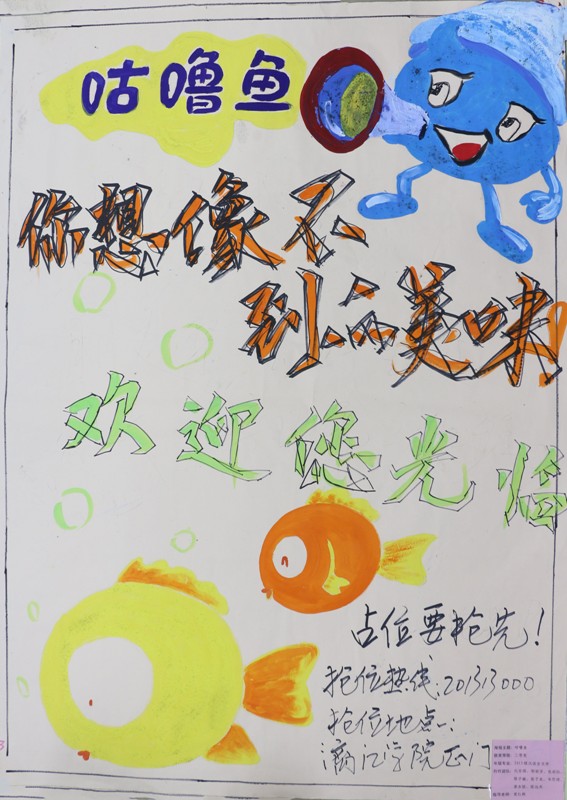 咕噜鱼
你想像不
到的美味!
欢迎您光临
占位要抢先!
抢位热线:201313000
抢位地点一:
漓江学院正门